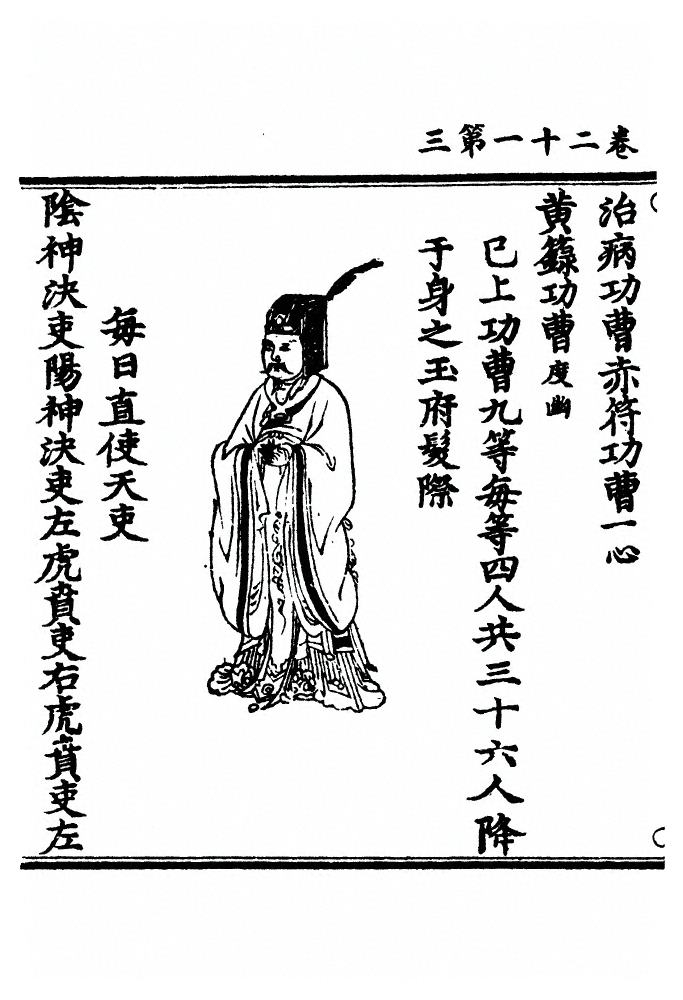 卷二十一第三
治病功曹赤符功曹一心
黄籙功曹度幽
已上功曹九等每等四人共三十六人降
于身之玉府髮際
每日直使天吏
陰神決吏陽神決吏左虎賁吏右虎賁吏左